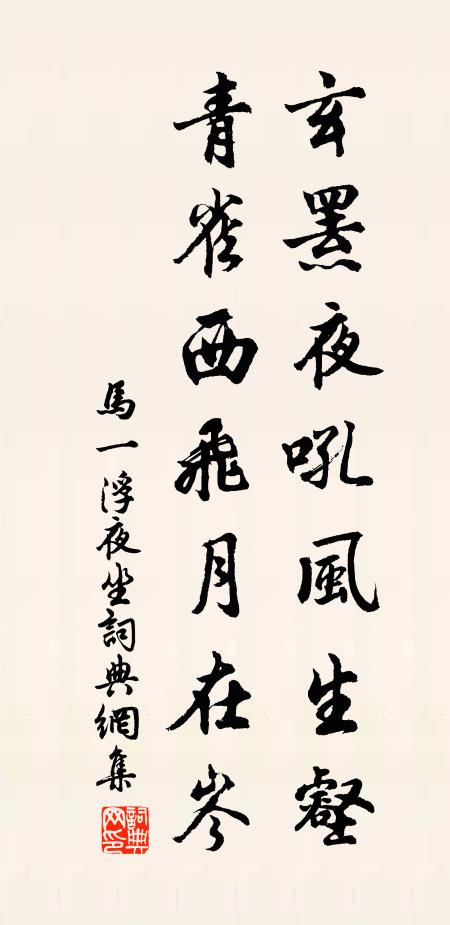 玄罴夜吼風生壑
青雀西飛月在岑
馬一浮夜坐詞典網集
詞典网印